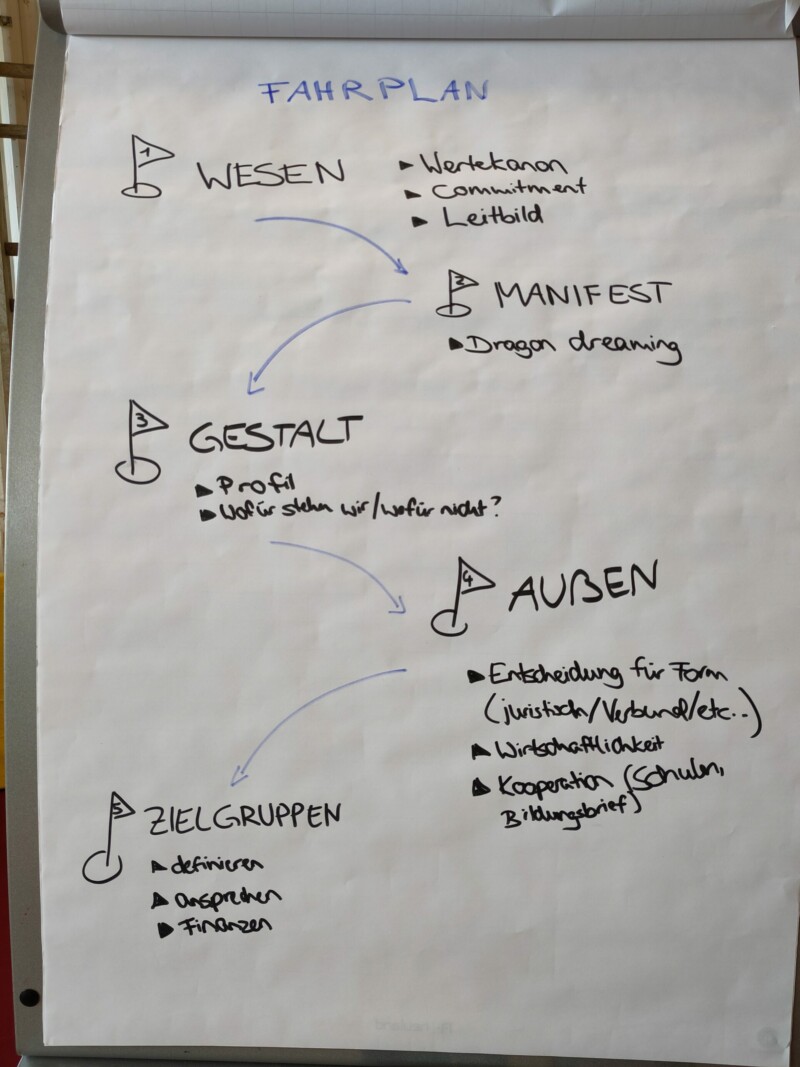 FAHRPLAN
1 WESEN
▶ Wertekanon
▶ Commitment
▶ Leitbild
2 MANIFEST
▶ Dragon dreaming
3 GESTALT
▶ Profil
▶ Wofür stehn wir/wofür nicht?
4 AUßEN
▶ Entscheidung für Form
(juristisch/Verbund/etc..)
▶ Wirtschaftlichkeit
▶ Kooperation (Schulen,
Bildungsbrief)
5 ZIELGRUPPEN
▶ definieren
▶ ansprechen
▶ Finanzen